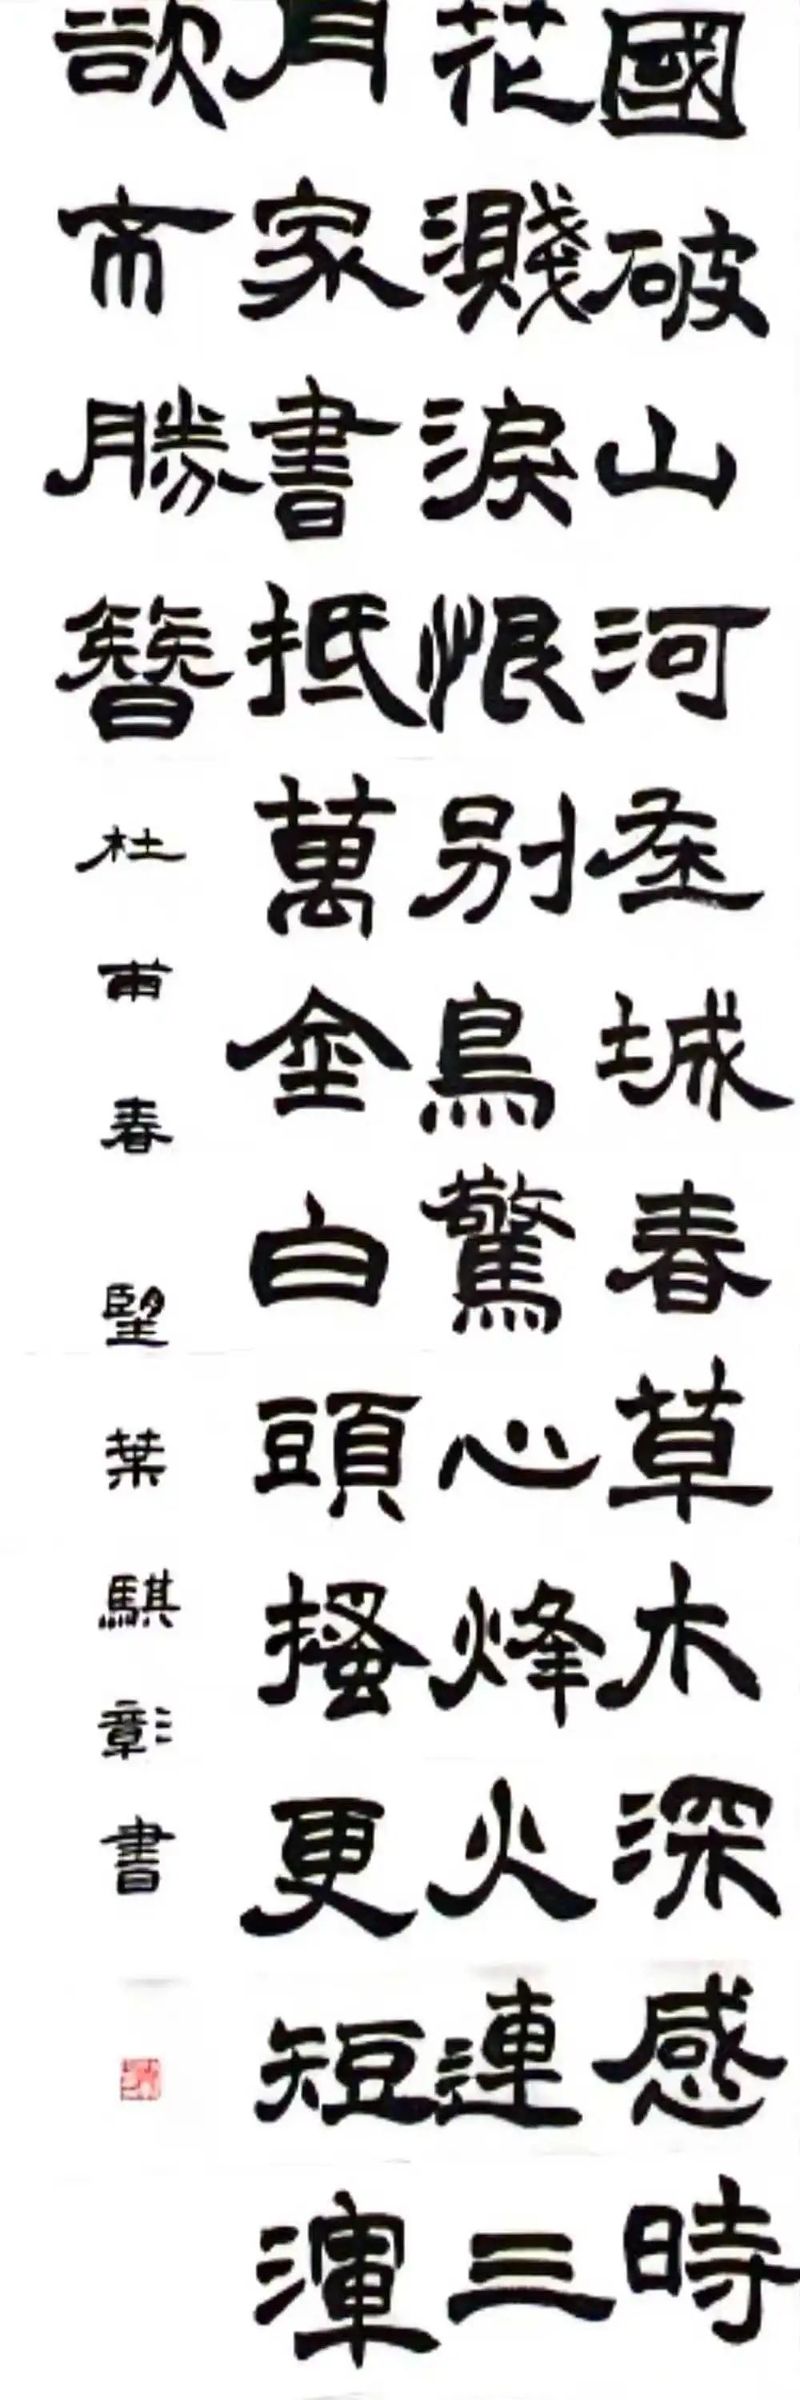 國破山河在城春草木深感時
花濺淚恨別鳥驚心烽火連三
月家書抵萬金白頭搔更短渾
欲不勝簪 杜甫春望葉騏彰書